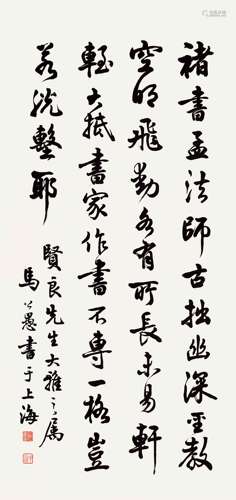 褚書孟法師古拙幽深聖教
空明飛動各有所長未易軒
輊大抵書家作書不專一格豈
若鑿耶
賢良先生大雅之屬
馬公愚書于上海